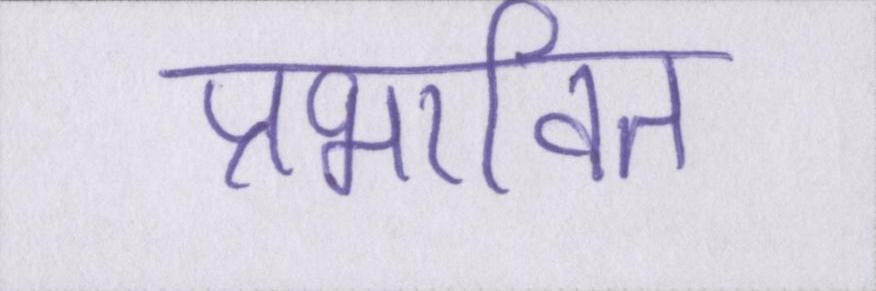 प्रभावित